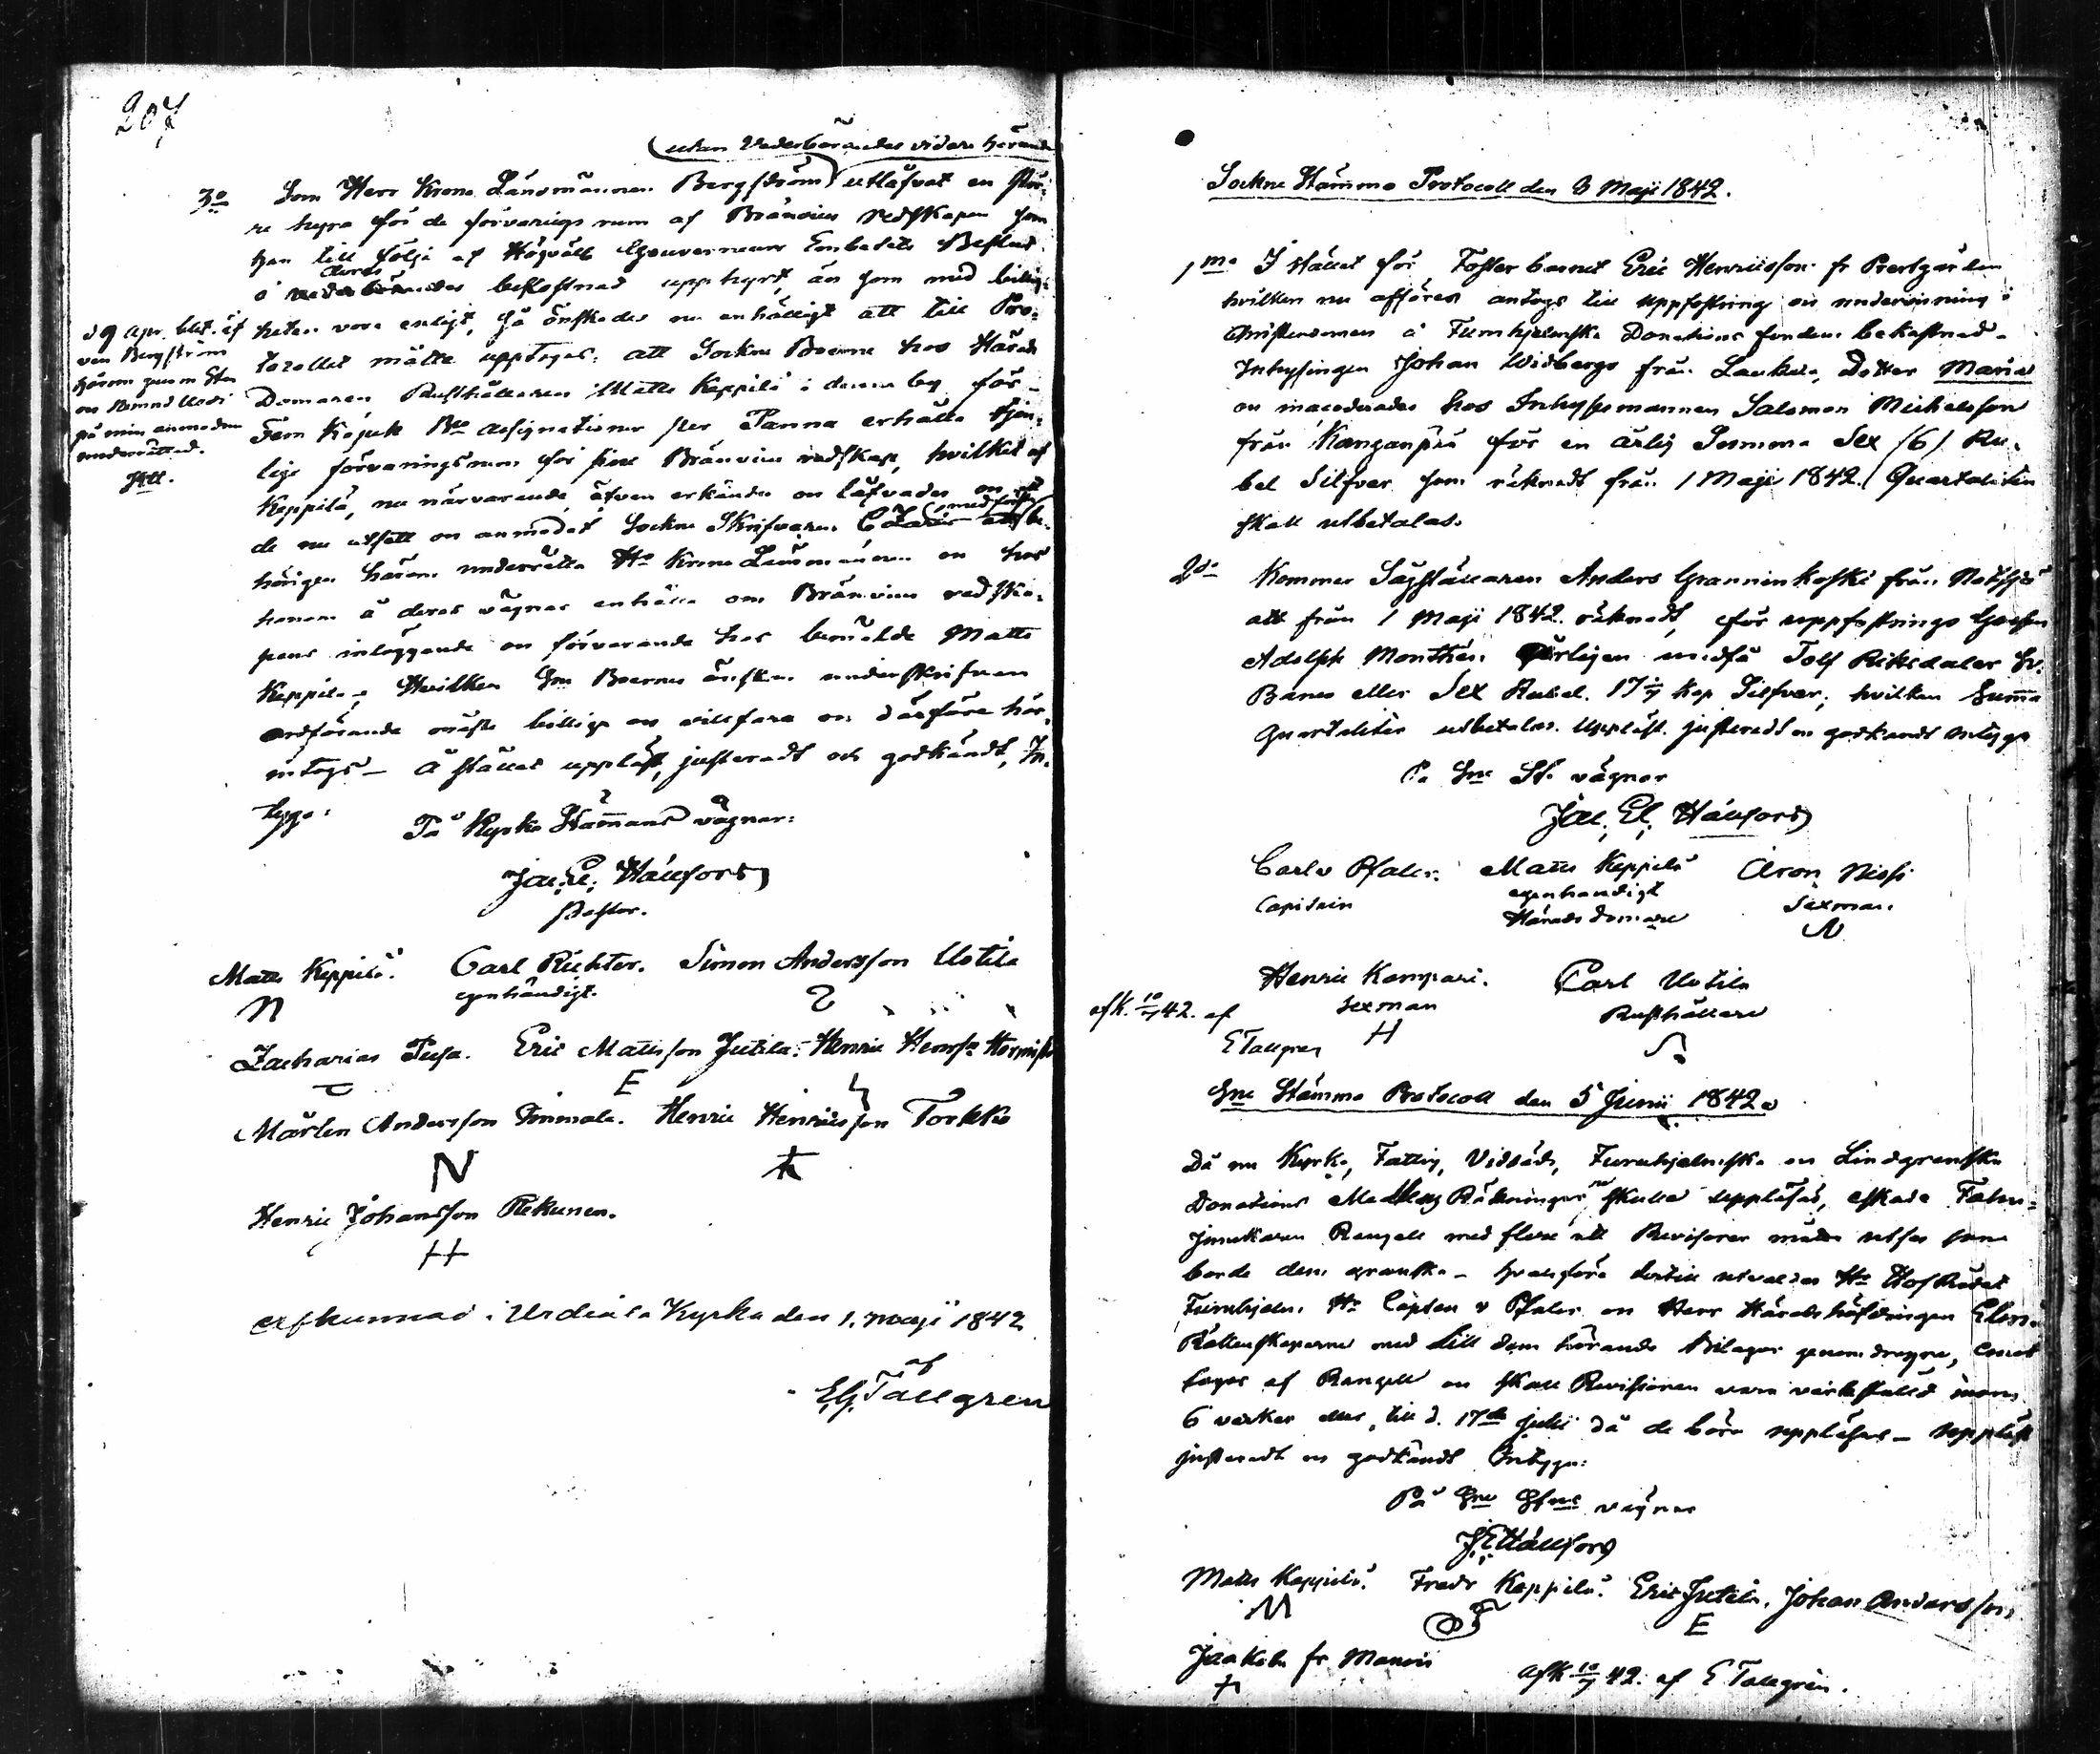 207
utan Vederbörandes vidare hörande
3o Som Herr Krono Länsmannen Bergström utläfvat en stör-
re hyra för de förvarings rum af Bränvins redskapen som
han till följe af Högvälb. Gouverneurs Embetets Beslut
deras
å bekostnad upphyrt, än som med billig-
heten vore enligt, så önskades nu enhälligt att till Pro-
tocollet måtte upptagas: att Sockne Boerne hos Härads
Domaren Rusthållaren Matts Keppilä i denna by för
Fem Kopek Bco Assignationer per Panna erhålla tjen-
lige förvaringsrum för sine Bränvins redskap, hvilket af
Keppilä, nu närvarande, äfven erkändes
de nu utsätt anmodat Sockne Skrifvaren
hörigen härom underrätta Hr Krono Länsmannen hos
honom å deras vägnar anhålla om Bränvins redska-
pens inläggande förvarande hos bemälde Matts
Keppilä, Hvilken Sne Boernes önskan underskrifven
ordförande måste billiga villfara därföre här
intogs – å stället uppläst, justeradt och godkändt, In-
tyga:
d 9 apr. blef
von Bergström
härom genom
Nemnd Uoti
på min anmodan
underrättad.
På Kyrko Stämmans vägnar:
Jac. El. Hällfors
Pastor.
Matts Keppilä. Carl Richter. Simon Andersson Uotila
egenhändigt.
Zacharias Pusa. Eric Matsson Jutila. Henric Henrss
E
Mårten Andersson Pimmala. Henric Henricsson Torkko
N
Henric Johansson Rekunen.
H
Afkunnad i Urdiala Kyrka den 1. maji 1842
af
E. G. Tallgren
Sockne Stämmo Protocoll den 3 Maji 1842.
1mo I stället för Fosterbarnet Eric Henricsson fr Prestgården
hvilken nu afföres antogs till uppfostring undervisning i
Christendomen å Furuhjelmska Donations fondens bekostnad
Inhysingen Johan Widbergs från Laukela, Dotter Maria
inackorderades hos Inhysesmannen Salomon Michelsson
från Kanganpää för en årlig Summa Sex (6) Ru-
bel Silfver som räknadt från 1 Maji 1842. Quartaliter
skall utbetalas.
2do Kommer Sågställaren Anders Granninkoski från Nutajä
att från 1 Maji 1842 räknadt, för uppfostrings Gossen
Adolph Monthén årligen undfå Tolf Riksdaler Sv.
Banco eller Sex Rubel 17 1/7 kop Silfver, hvilken Summa
Quartaliter utbetalas. Uppläst justeradt godkändt intyga
På Sne St. vägnar
Jac. El. Hällfors
Carl v Pfaler. Matts Keppilä Aron Nissi
Capitain egenhändigt Sexman.
Härads domare N
Henric Kampari. Carl Uotila
Sexman Rusthållare
H
afk. 10/7 42. af
E Tallgren
Sne Stämmo Protocoll den 5 Junii 1842.
Då nu Kyrko, Fattig, Vidsäds, Furuhjelmska Lindgrenska
Donations Räkningar skulle uppläsas, äskade Fahn-
junkaren Rengell med flere att Revisorer måtte utses som
borde dem granska – hvarföre dertill utvaldes Hr Hof Rådet
Furuhjelm. Hr Capten v Pfaler Herr Häradshöfdingen
Räkenskaperne med till dem hörande Bilagor genomdragne,
tages af Rengell skall Revisionen vara verkställd inom
6 veckor eller till d. 17de Julii då de böra uppläsas – uppläst
justeradt godkändt Intyga:
På Sne Sfns vägnar
J. E. Hällfors
Matts Keppilä. Fredr Keppilä. Eric Jutila. Johan Andersson
M E
Jaakola fr Mannii
Afk 10/7 42. af E Tallgren.